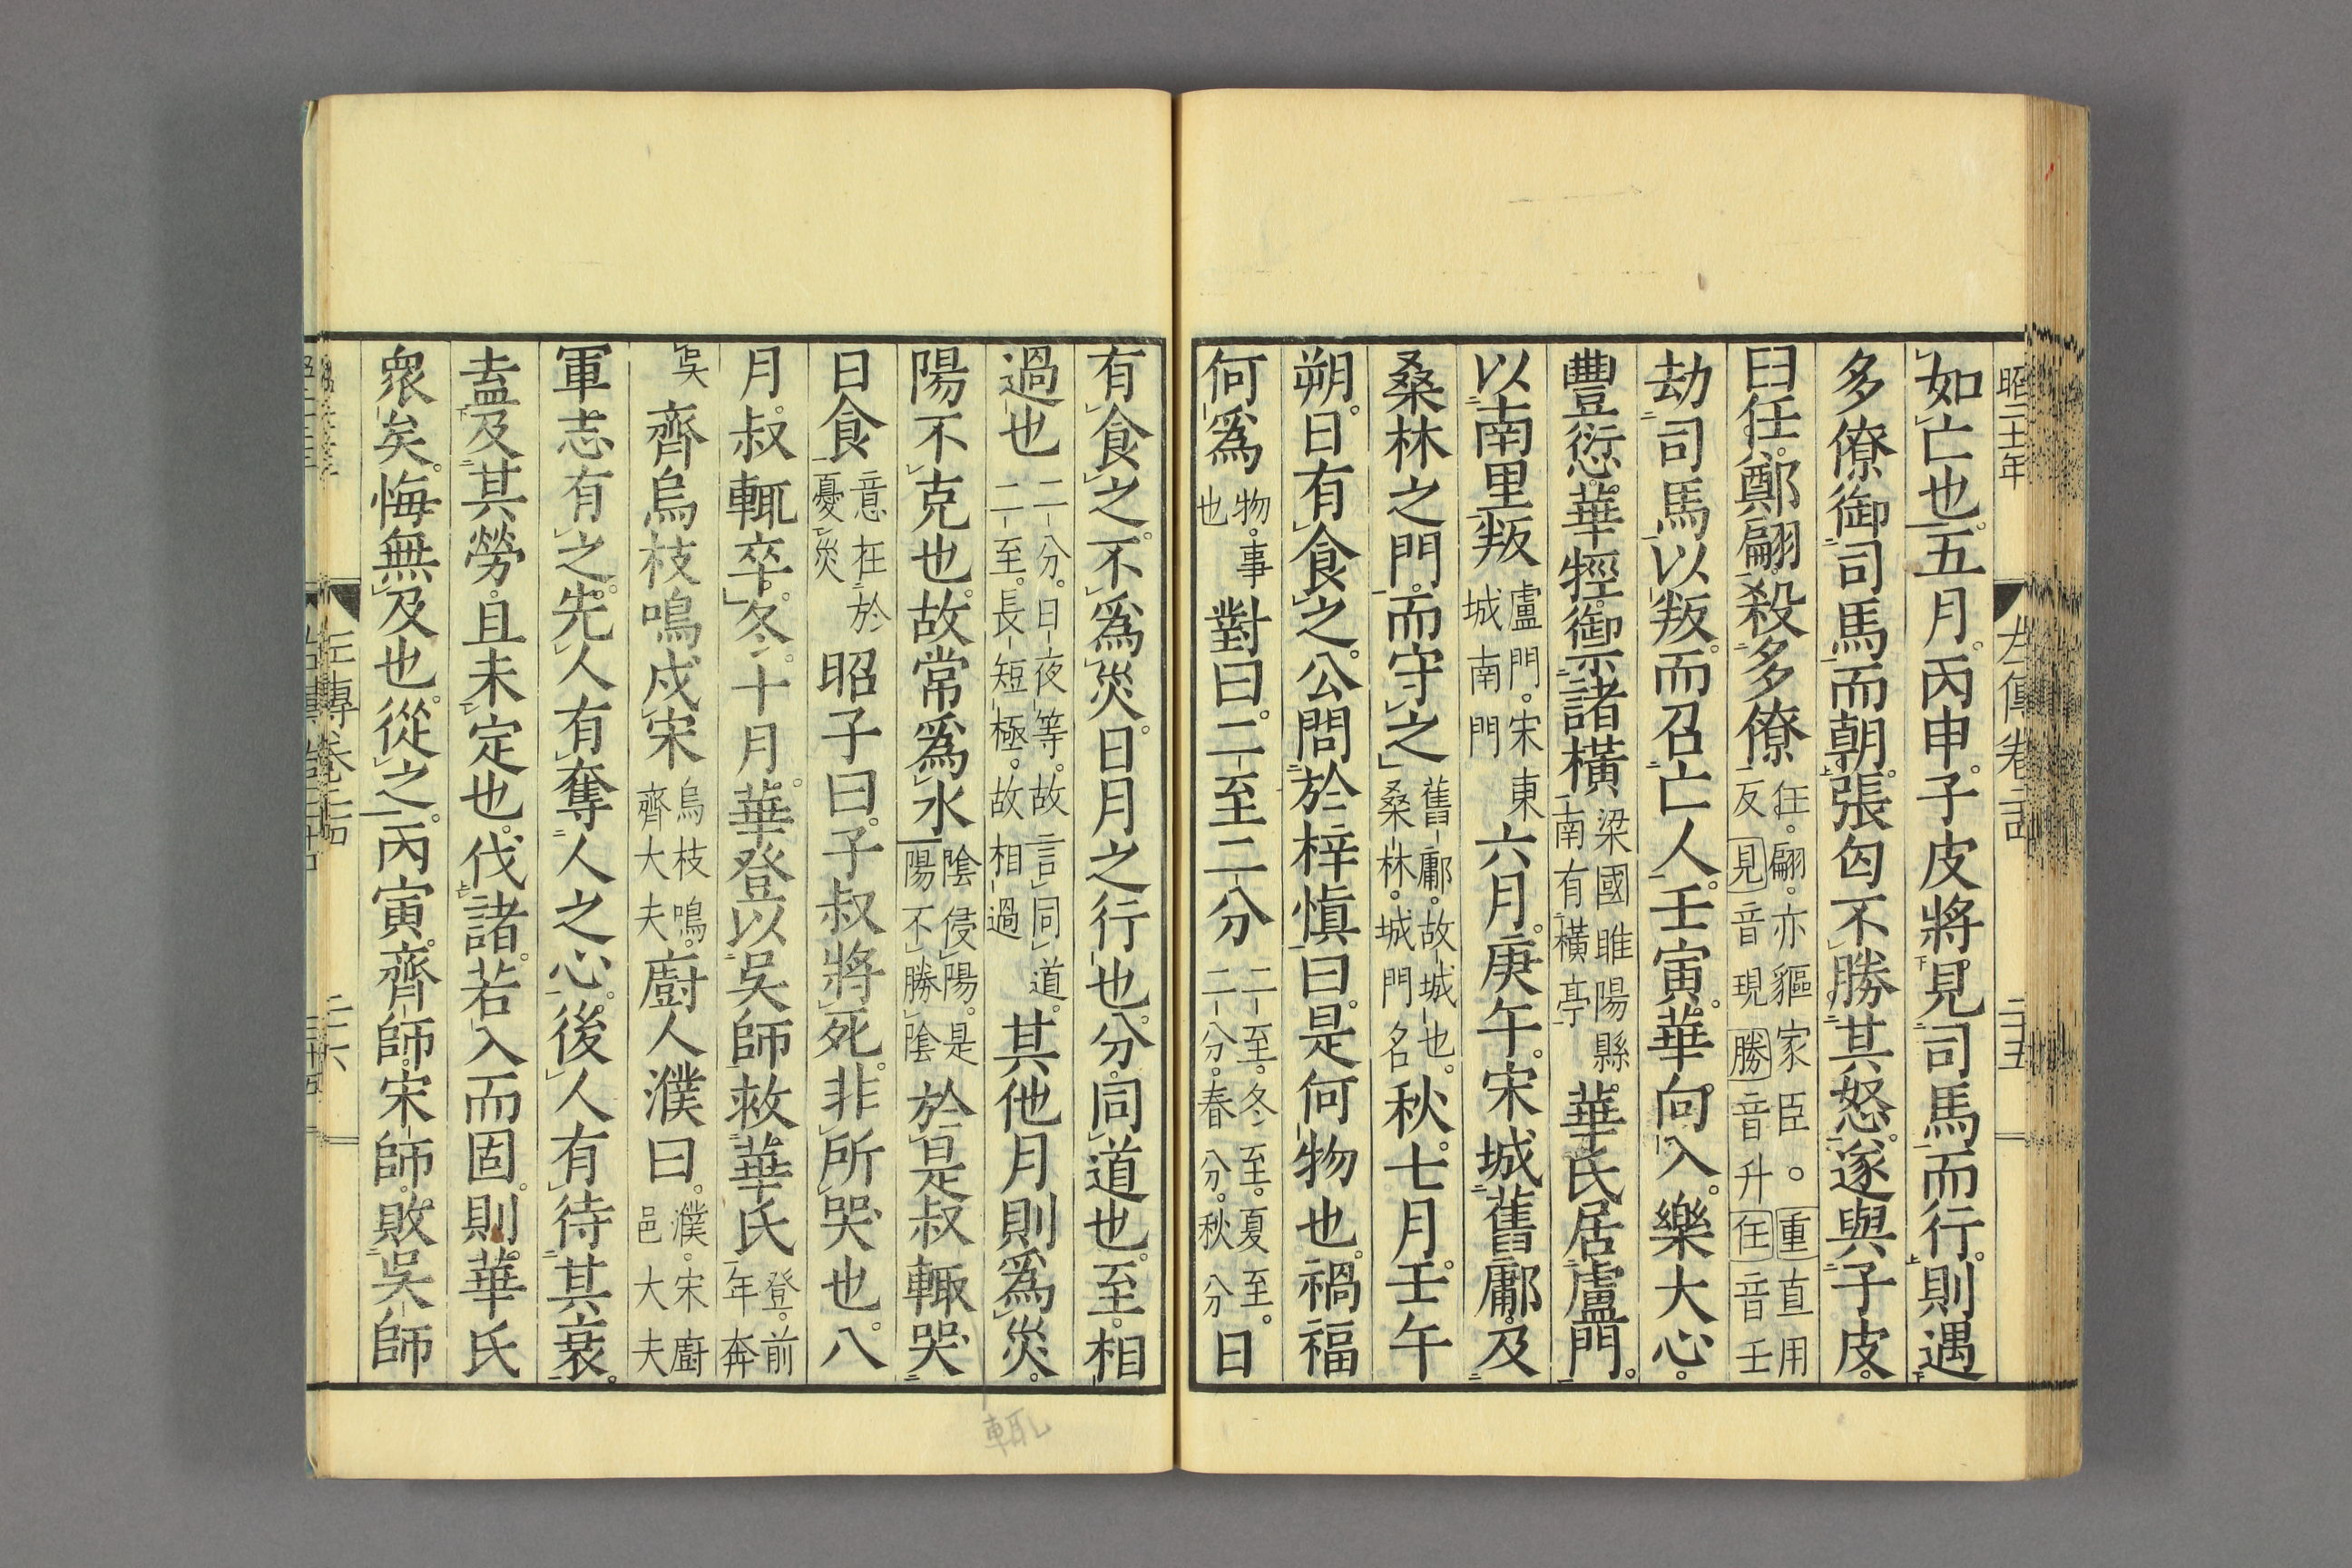 昭二十一年
如亡也。五月。丙申。子皮將見司馬而行。則遇
多僚御司馬而朝。張匄不勝其怒。遂與子皮。
臼任。鄭翩。殺多僚任。翩。亦貙家臣。重直用反見音現勝音升任音壬
劫司馬以叛。而召亡人。壬寅。華向入。樂大心。
豐愆。華牼。御諸橫梁國睢陽縣南有橫亭華氏居盧門。
以南里叛盧門。宋東城南門六月。庚午。宋城舊鄘。及
桑林之門。而守之舊鄘。故城也。桑林。城門名秋。七月。壬午
朔。日有食之。公問於梓慎曰。是何物也。禍福
何爲物。事也對曰。二至二分二至。冬至。夏至。二分。春分。秋分日
有食之。不爲災。日月之行也。分。同道也。至。相
過也二分。日夜等。故言同道。二至。長短極。故相過其他月則爲災。
陽不克也。故常爲水陰侵陽。是陽不勝陰於是叔輒哭
日食意在於憂災昭子曰。子叔將死。非所哭也。八
月。叔輒卒。冬。十月。華登以吳師救華氏登。前年奔
吳齊烏枝鳴戍宋烏枝鳴。齊大夫廚人濮曰。濮。宋廚邑大夫
軍志有之。先人有奪人之心。後人有待其衰。
盍及其勞。且未定也。伐諸。若入而固。則華氏
衆矣。悔無及也。從之。丙寅。齊師。宋師。敗吳師
左傳卷二十四
二十六
輒